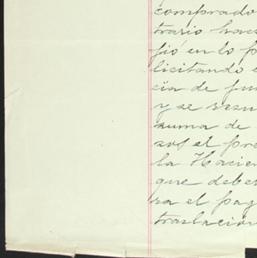 comprado
trario hac
fió en lo p
licitando e
cia de fu
y se resu
suma de
sos el pre
la Hacien
que debe
sa el pag
traslacion